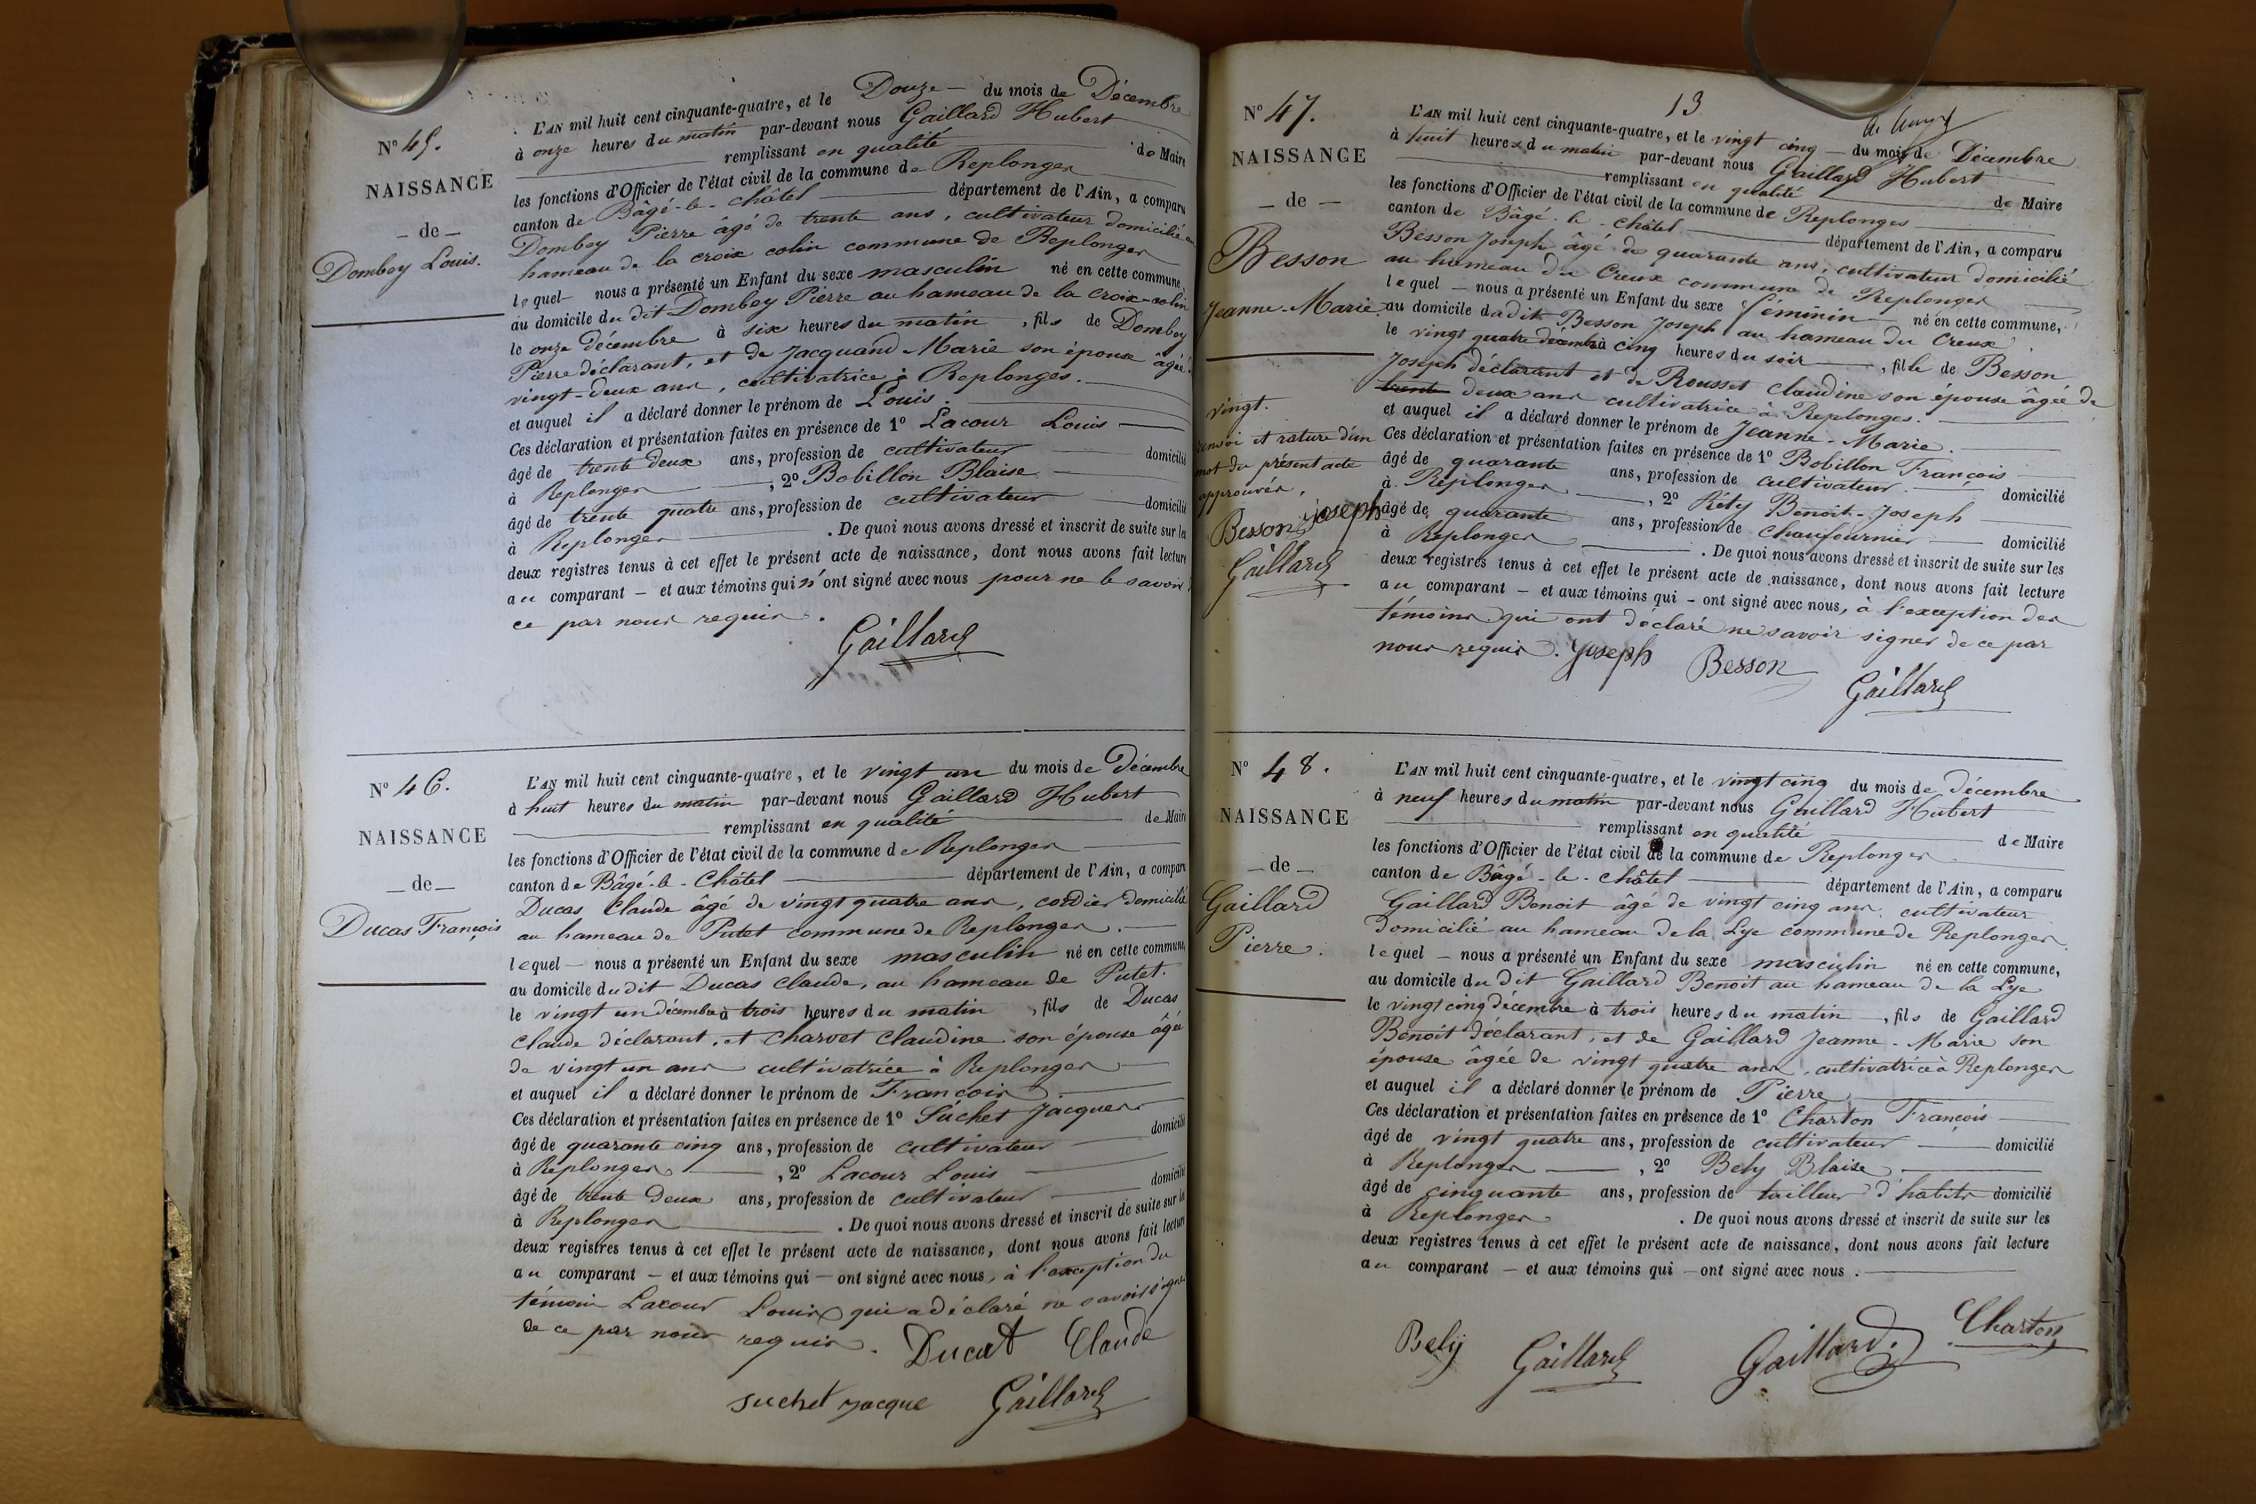 N° 45.
NAISSANCE
de
Dombey Louis.
L'AN mil huit cent cinquante-quatre, et le Douze du mois de Décembre
à onze heures du matin par-devant nous Gaillard Hubert
remplissant en qualité de Maire
les fonctions d'Officier de l'état civil de la commune de Replonges
canton de Bâgé-le-Châtel département de l'Ain, a comparu
Dombey Pierre âgé de trente ans, cultivateur domicilié au
hameau de la croix colin commune de Replonges
lequel nous a présenté un Enfant du sexe masculin né en cette commune,
au domicile du dit Dombey Pierre au hameau de la Croix-colin
le onze décembre à six heures du matin, fils de Dombey
Pierre déclarant, et de Jacquand Marie son épouse âgée
vingt-deux ans, cultivatrice à Replonges.
et auquel il a déclaré donner le prénom de Louis.
Ces déclaration et présentation faites en présence de 1° Lacour Louis
âgé de trente deux ans, profession de cultivateur domicilié
à Replonges, 2° Bobillon Blaise
âgé de trente quatre ans, profession de cultivateur domicilié
à Replonges. De quoi nous avons dressé et inscrit de suite sur les
deux registres tenus à cet effet le présent acte de naissance, dont nous avons fait lecture
au comparant – et aux témoins qui n'ont signé avec nous pour ne le savoir
ce par nous requis.
Gaillard
N° 46.
NAISSANCE
de
Ducas François
L'AN mil huit cent cinquante-quatre, et le vingt un du mois de Décembre
à huit heures du matin par-devant nous Gaillard Hubert
remplissant en qualité de Maire
les fonctions d'Officier de l'état civil de la commune de Replonges
canton de Bâgé-le-Châtel département de l'Ain, a comparu
Ducas Claude âgé de vingt quatre ans, cordier domicilié
au hameau de Putet commune de Replonges.
lequel – nous a présenté un Enfant du sexe masculin né en cette commune,
au domicile du dit Ducas Claude, au hameau de Putet.
le vingt un décembre à trois heures du matin, fils de Ducas
Claude déclarant, et Charvet Claudine son épouse âgée
de vingt un ans cultivatrice à Replonges
et auquel il a déclaré donner le prénom de François
Ces déclaration et présentation faites en présence de 1° Suchet Jacques
âgé de quarante cinq ans, profession de cultivateur domicilié
à Replonges, 2° Lacour Louis
âgé de trente deux ans, profession de cultivateur domicilié
à Replonges. De quoi nous avons dressé et inscrit de suite sur les
deux registres tenus à cet effet le présent acte de naissance, dont nous avons fait lecture
au comparant – et aux témoins qui – ont signé avec nous, à l'exception du
témoin Lacour Louis qui a déclaré ne savoir signer
de ce par nous requis. Ducat Claude
suchet jacque Gaillard
13
N° 47.
NAISSANCE
de
Besson
Jeanne-Marie.
vingt.
renvoi et rature d'un
mot du présent acte
approuvés.
Besson joseph
Gaillard
L'AN mil huit cent cinquante-quatre, et le vingt cinq du mois de Décembre
à huit heures du matin par-devant nous Gaillard Hubert
remplissant en qualité de Maire
les fonctions d'Officier de l'état civil de la commune de Replonges
canton de Bâgé-le-Châtel département de l'Ain, a comparu
Besson Joseph âgé de quarante ans, cultivateur domicilié
au hameau du Creux commune de Replonges
lequel – nous a présenté un Enfant du sexe féminin né en cette commune,
au domicile du dit Besson Joseph au hameau du Creux
le vingt quatre décembre à cinq heures du soir, fille de Besson
Joseph déclarant et de Rousset Claudine son épouse âgée de
trente deux ans cultivatrice à Replonges.
et auquel il a déclaré donner le prénom de Jeanne-Marie.
Ces déclaration et présentation faites en présence de 1° Bobillon François
âgé de quarante ans, profession de cultivateur domicilié
à Replonges, 2° Réty Benoit-Joseph
âgé de quarante ans, profession de Chaufournier domicilié
à Replonges. De quoi nous avons dressé et inscrit de suite sur les
deux registres tenus à cet effet le présent acte de naissance, dont nous avons fait lecture
au comparant – et aux témoins qui – ont signé avec nous, à l'exception des
témoins qui ont déclaré ne savoir signer de ce par
nous requis. Joseph Besson
Gaillard
N° 48.
NAISSANCE
de
Gaillard
Pierre.
L'AN mil huit cent cinquante-quatre, et le vingt cinq du mois de décembre
à neuf heures du matin par-devant nous Gaillard Hubert
remplissant en qualité de Maire
les fonctions d'Officier de l'état civil de la commune de Replonges
canton de Bâgé-le-Châtel département de l'Ain, a comparu
Gaillard Benoit âgé de vingt cinq ans, cultivateur
domicilié au hameau de la Lye commune de Replonges.
lequel – nous a présenté un Enfant du sexe masculin né en cette commune,
au domicile du dit Gaillard Benoit au hameau de la Lye
le vingt cinq décembre à trois heures du matin, fils de Gaillard
Benoit déclarant, et de Gaillard Jeanne-Marie son
épouse âgée de vingt quatre ans, cultivatrice à Replonges
et auquel il a déclaré donner le prénom de Pierre
Ces déclaration et présentation faites en présence de 1° Charton François
âgé de vingt quatre ans, profession de cultivateur domicilié
à Replonges, 2° Bely Blaise
âgé de cinquante ans, profession de tailleur d'habits domicilié
à Replonges. De quoi nous avons dressé et inscrit de suite sur les
deux registres tenus à cet effet le présent acte de naissance, dont nous avons fait lecture
au comparant – et aux témoins qui – ont signé avec nous.
Bely Gaillard Gaillard. Charton